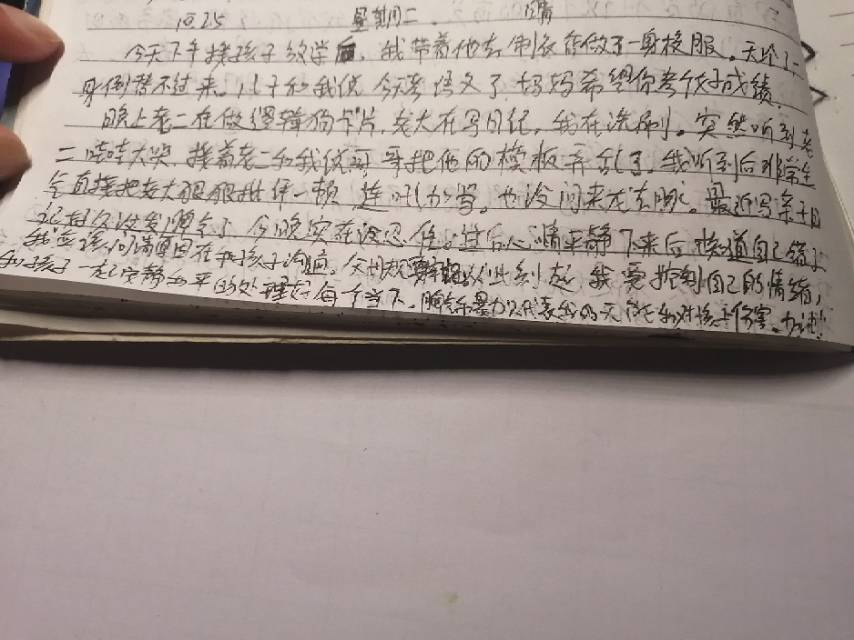 10.25 星期二 晴
今天下午接孩子放学后,我带着他去制衣店做了一身校服。天冷了一
身倒替不过来。儿子和我说今天考语文了,妈妈希望你考个好成绩。
晚上老二在做逻辑狗卡片,老大在写日记,我在洗刷。突然听到老
二哇哇大哭,接着老二和我说哥哥把他的模板弄乱了。我听到后非常生
气直接把老大狠狠批评一顿,连吼加骂。也没问来龙去脉。最近写亲子日
记好久没发脾气了,今晚实在没忍住。过后心情平静下来后,知道自己错了
我应该问清原因在和孩子沟通。从此刻起我要控制自己的情绪,
和孩子一起安静和平的处理好每个当下。脾气暴力只代表我的无能和对孩子伤害。加油!